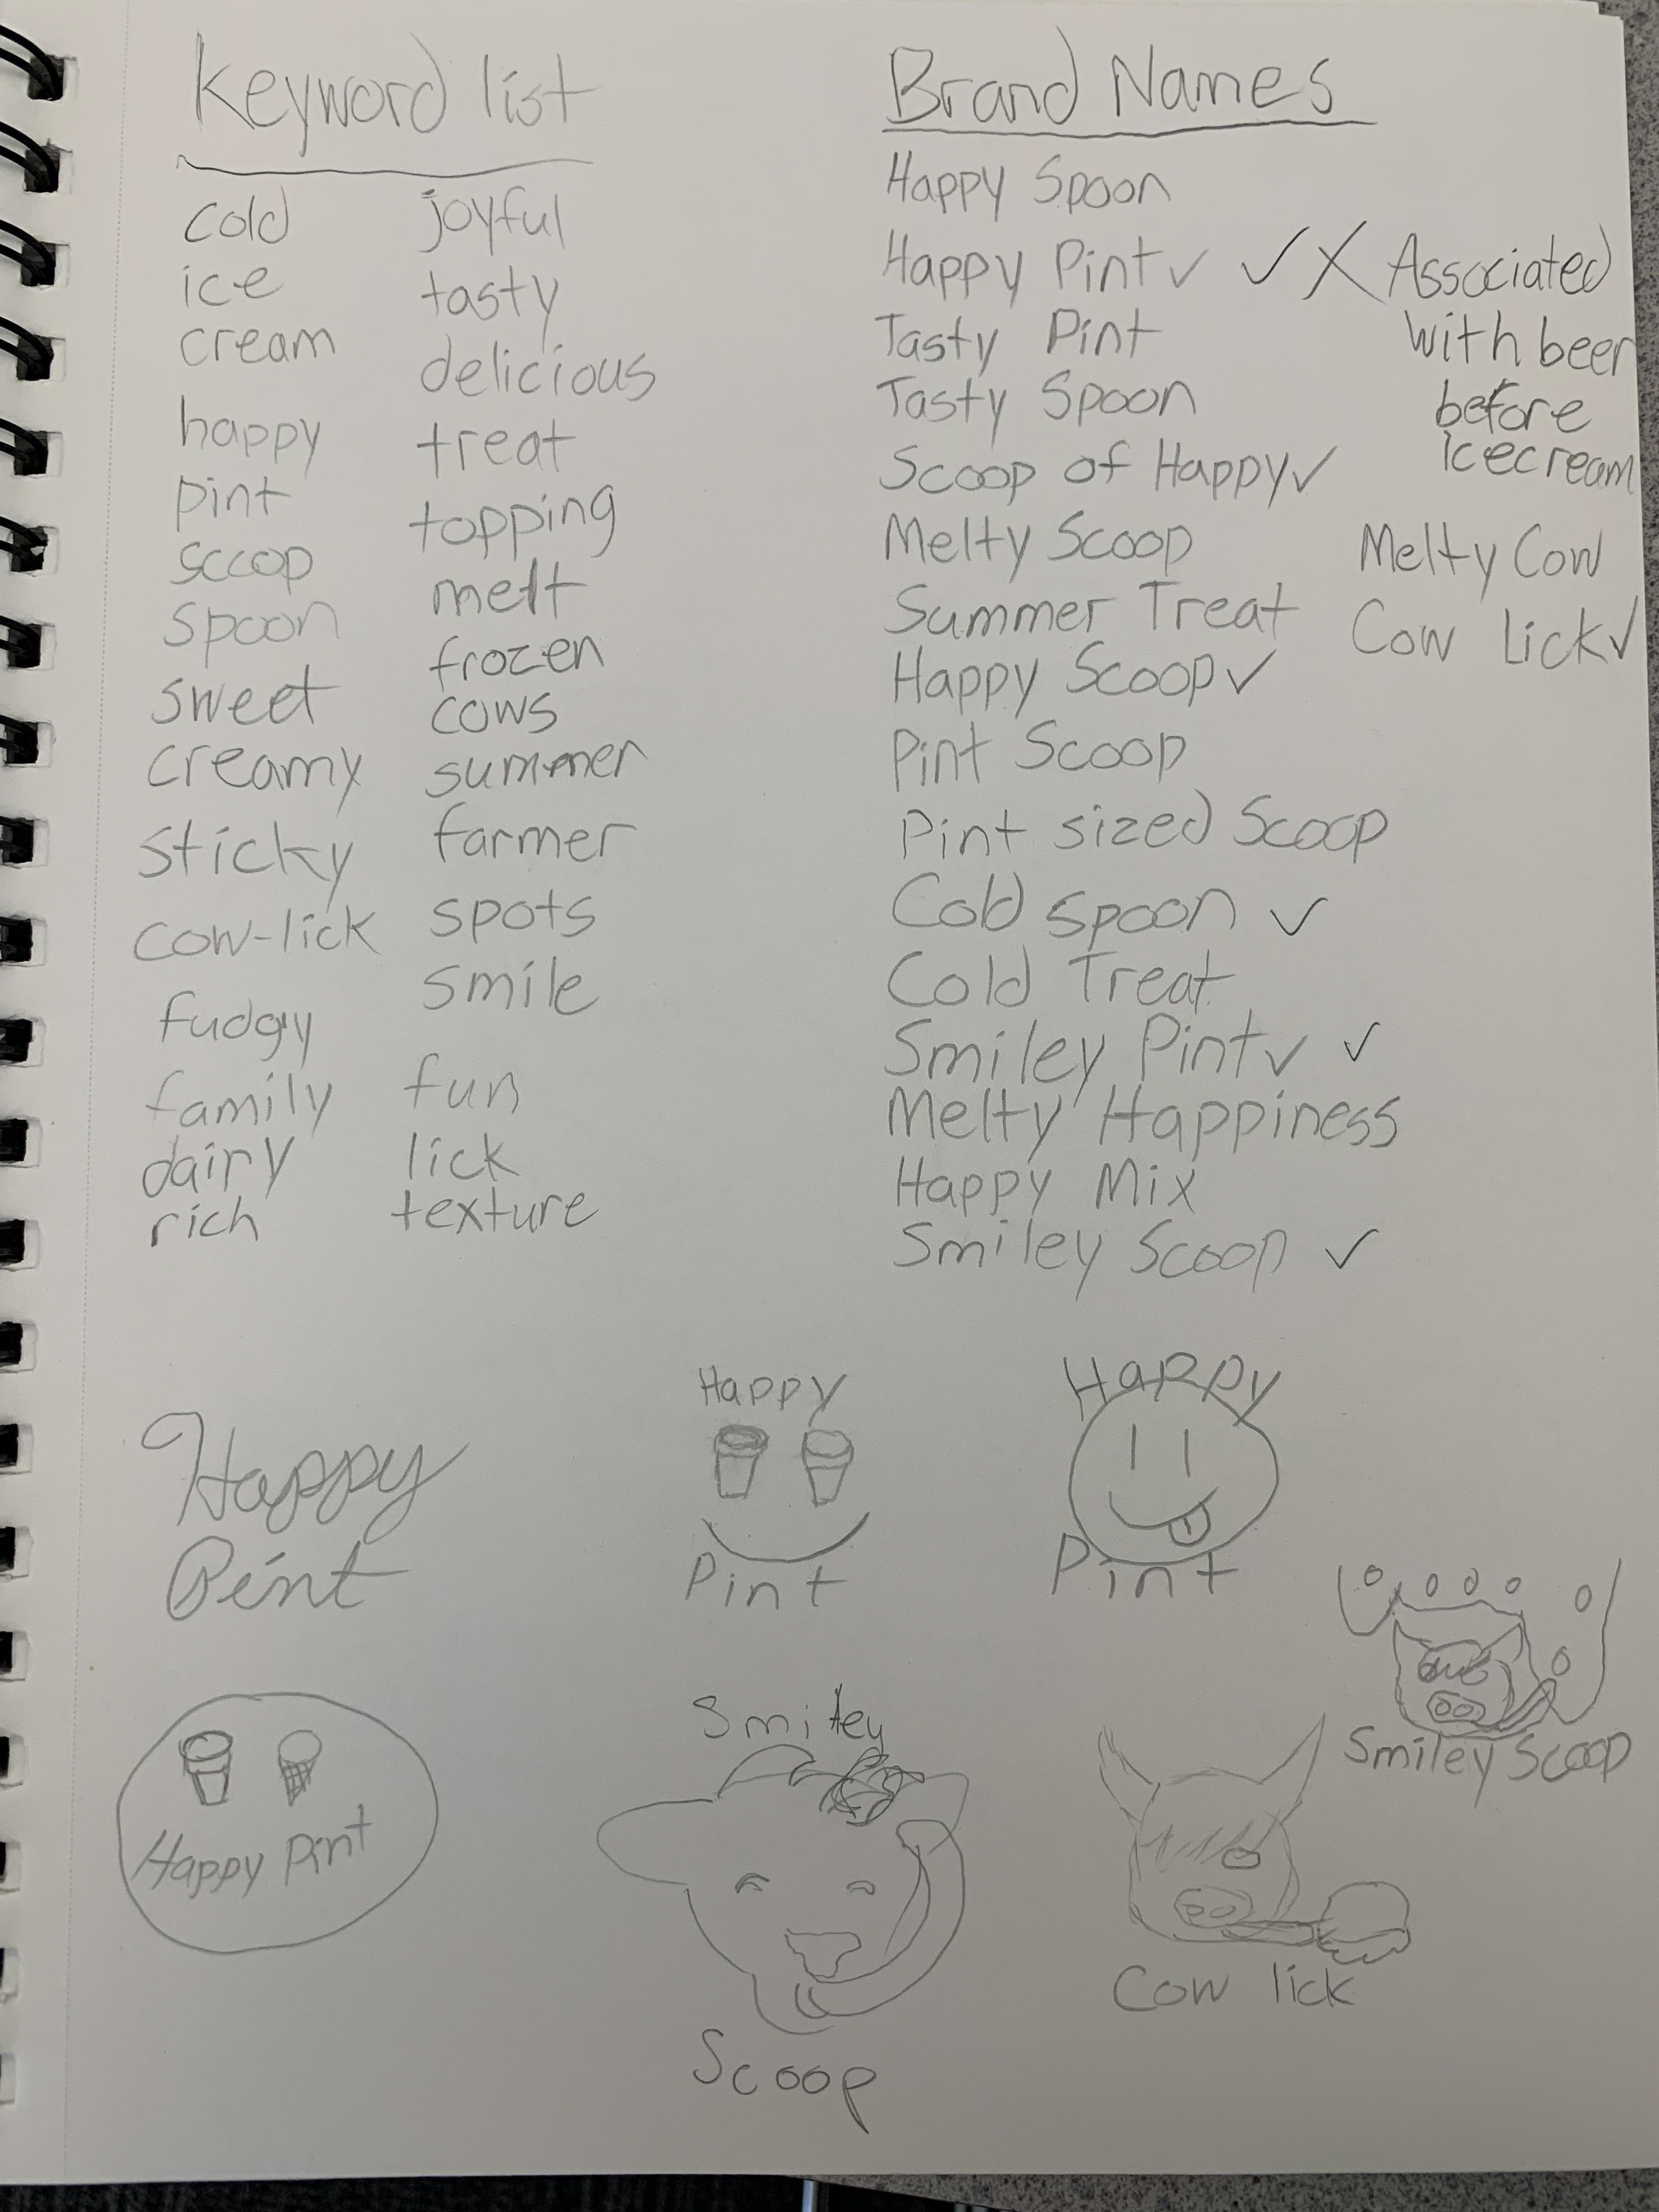 Keyword list
cold
ice
cream
happy
pint
sccop
spoon
sweet
creamy
sticky
cow-lick
fudgy
family
dairy
rich
joyful
tasty
delicious
treat
topping
melt
frozen
cows
summer
farmer
spots
smile
fun
lick
texture
Brand Names
Happy Spoon
Happy Pint ✓ ✓ X Associated
with beer
before
icecream
Tasty Pint
Tasty Spoon
Scoop of Happy ✓
Melty Scoop
Summer Treat
Happy Scoop ✓
Pint Scoop
Pint sized Scoop
Cold spoon ✓
Cold Treat
Smiley Pint ✓ ✓
Melty Happiness
Happy Mix
Smiley Scoop ✓
Melty Cow
Cow Lick ✓
Happy
Pint
Happy
Pint
Happy
Pint
Smiley Scoop
Happy Pint
Smiley
Scoop
Cow lick